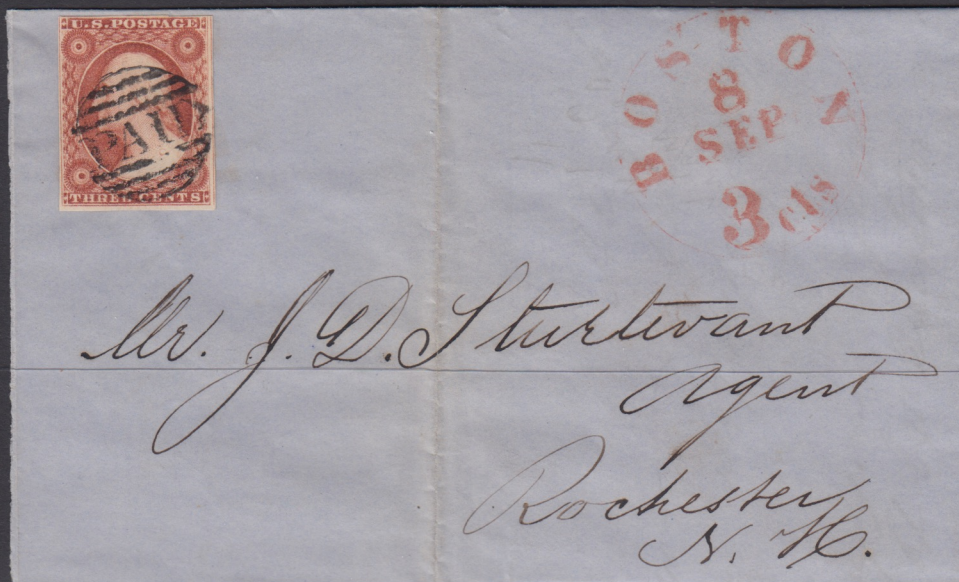 U.S. POSTAGE
PAID
THREE CENTS
BOSTON
8
SEP
3 cts
Mr. J. D. Sturtevant
Agent
Rochester
N. H.